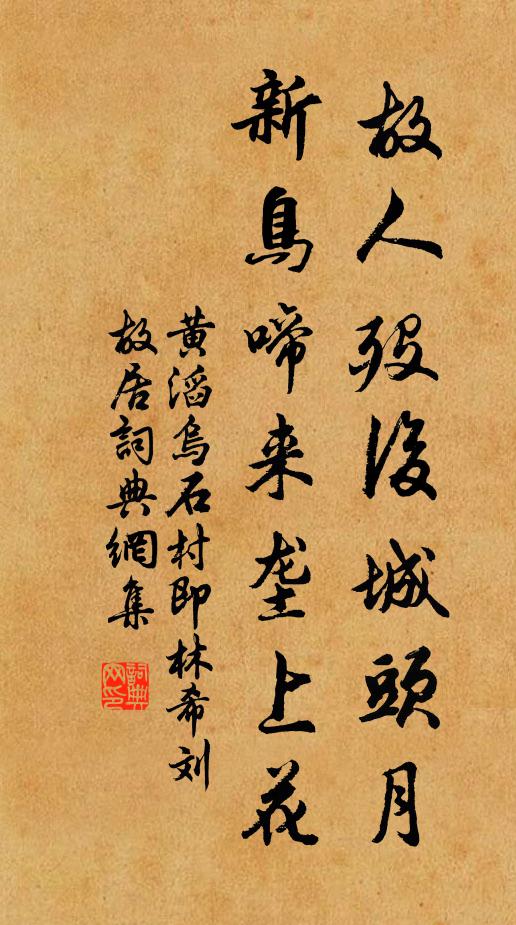 故人歿後城頭月
新鳥啼来垄上花
黄滔烏石村即林希刘
故居詞典網集
詞典网印